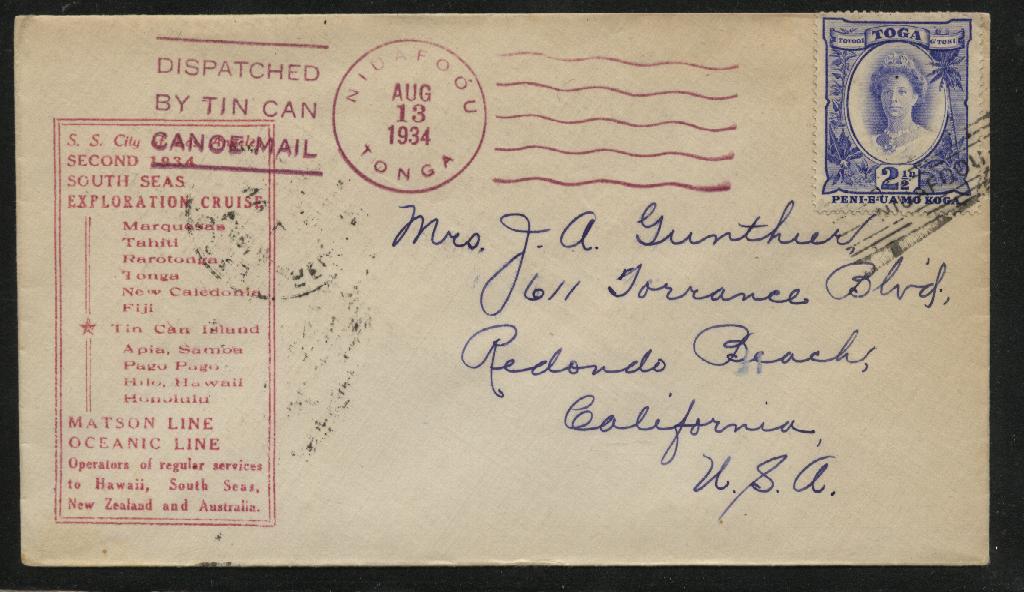 DISPATCHED
BY TIN CAN
CANOE MAIL
NIUAFOOU
AUG
13
1934
TONGA
TOGA
2½D
PENI-E-UA MO KOGA
NIUAFOOU
S. S. City
SECOND 1934
SOUTH SEAS
EXPLORATION CRUISE
Marquesas
Tahiti
Rarotonga
Tonga
New Caledonia
Fiji
Tin Can Island
Apia, Samoa
Pago Pago
Hilo, Hawaii
Honolulu
MATSON LINE
OCEANIC LINE
Operators of regular services
to Hawaii, South Seas,
New Zealand and Australia.
Mrs. J. A. Gunthier,
611 Torrance Blvd.,
Redondo Beach,
California,
U.S.A.